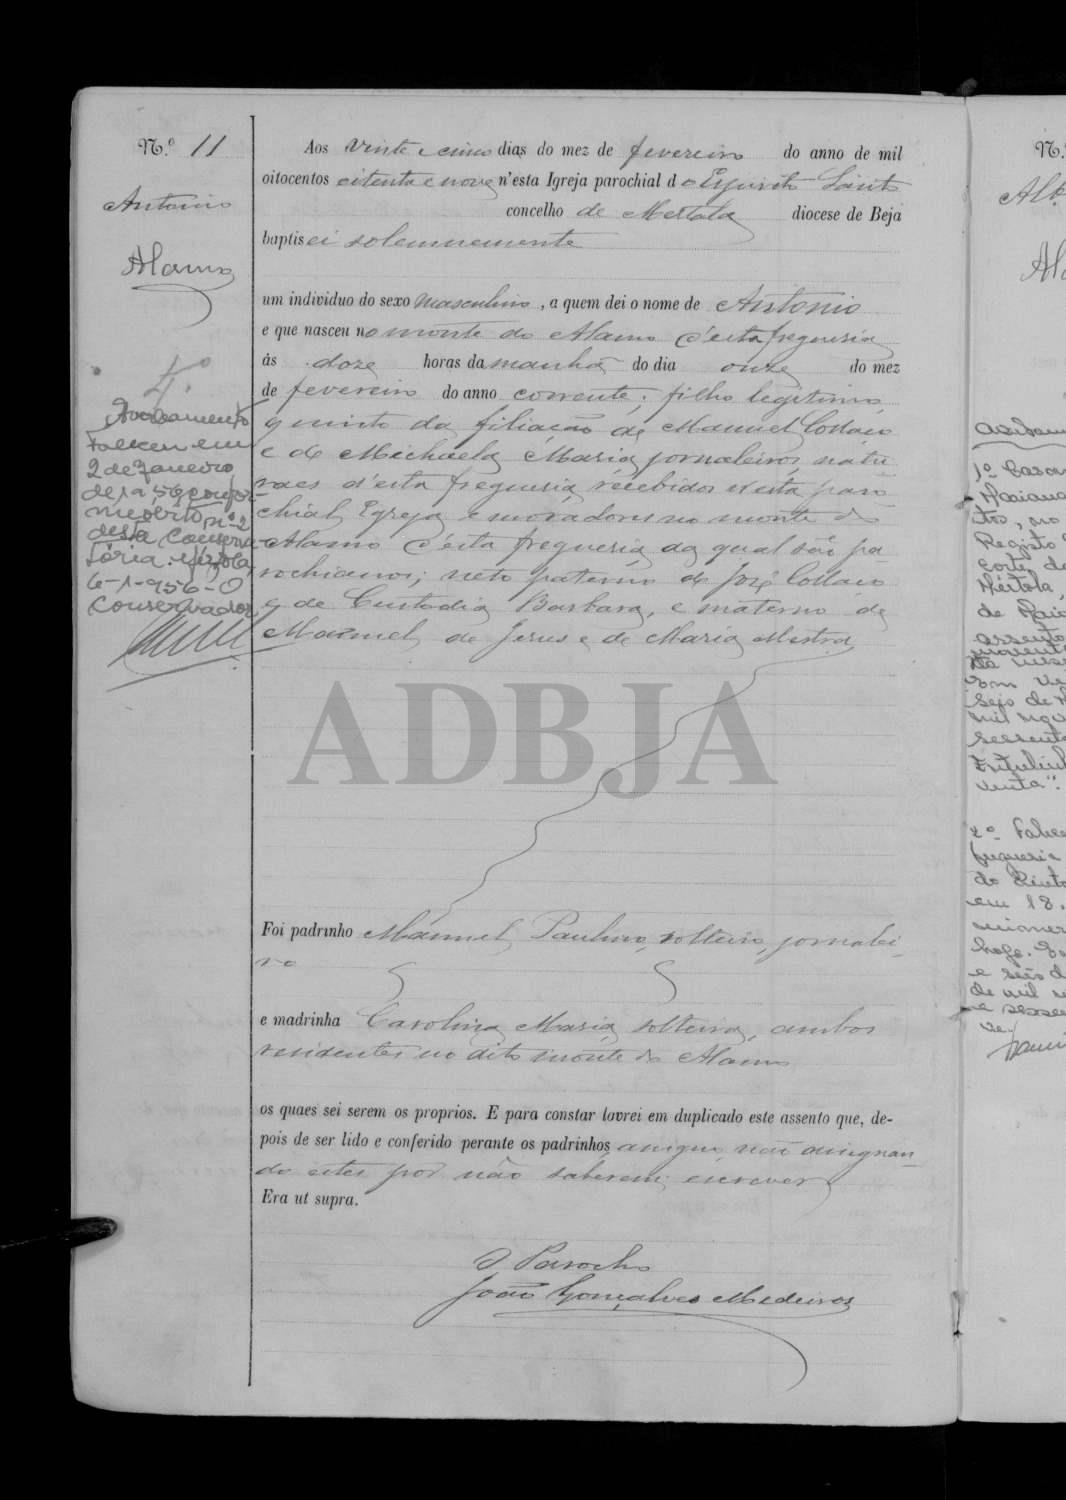 N.º 11
Antonio
Alamo
1.º
Averbamento
Faleceu em
2 de Janeiro
de 1956 confor-
me obito nº 2
desta Conserva-
tória. Mértola,
6-1-956-O
Conservador
Aos vinte e cinco dias do mez de fevereiro do anno de mil
oitocentos oitenta e nove n'esta Igreja parochial do Espirito Santo
concelho de Mertola diocese de Beja
baptisei solemnemente
um individuo do sexo masculino, a quem dei o nome de Antonio
e que nasceu no monte do Alamo d'esta freguesia
ás doze horas da manhã do dia onze do mez
de fevereiro do anno corrente; filho legitimo,
quinto da filiação de Manuel Collaço
e de Michaela Maria jornaleiros, natu
raes d'esta freguesia, recebidos n'esta paro
chial Egreja e moradores no monte do
Alamo d'esta freguesia da qual são pa-
rochianos; neto paterno de José Collaço
e de Custodia Barbara, e materno de
Manuel de Jesus e de Maria Mestra
ADBJA
Foi padrinho Manuel Paulino, solteiro, jornalei-
ro
e madrinha Carolina Maria, solteira, ambos
residentes no dito monte do Alamo
os quaes sei serem os proprios. E para constar lavrei em duplicado este assento que, de-
pois de ser lido e conferido perante os padrinhos, assigno, não assignan-
do estes por não saberem escrever
Era ut supra.
O Parocho
João Gonçalves Medeiros
N.
Al
1º Casou
Registo
Mértola,
de
assento
Em
seis de
mil
em 18.
hoje.
de mil